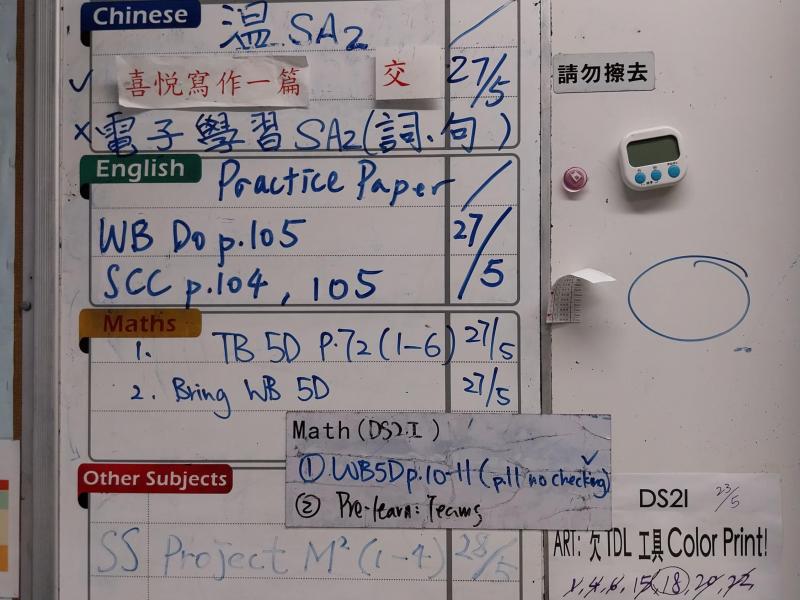 Chinese
溫 SA2
喜悅寫作一篇 交 27/5
電子學習 SA2(詞、句)
English Practice Paper
WB Do p.105 27/5
SCC p.104, 105
Maths
1. TB 5D P.72(1-6) 27/5
2. Bring WB 5D 27/5
Math(DS2I)
① WB5D p.10-11(p.11 no checking)
② Pre-learn: Teams
Other Subjects
SS Project M² (1-4) 28/5
請勿擦去
DS2I 23/5
ART: 欠 TDL 工具 Color Print!
1, 4, 6, 15, 18, 20, 22